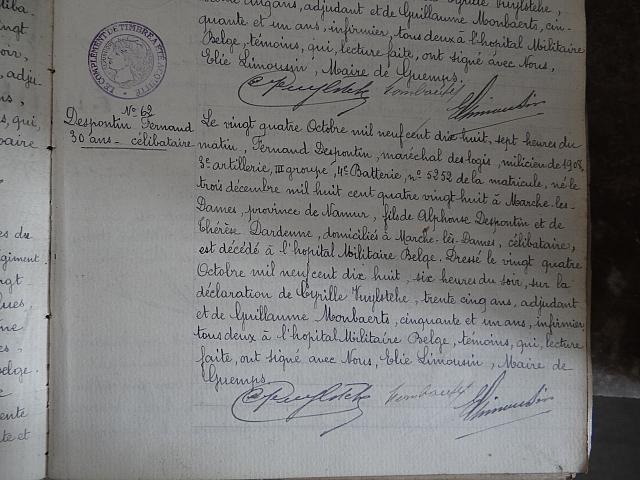 adjudant et de Guillaume Monbaerts, cin-
quante et un ans, infirmier, tous deux à l'hopital Militaire
Belge, témoins, qui, lecture faite, ont signé avec Nous,
Elie Limousin, Maire de Guemps.
LE COMPLÉMENT DE TIMBRE A ÉTÉ ACQUITTÉ
No 62
Despontin Fernand
30 ans - célibataire
Le vingt quatre Octobre mil neuf cent dix huit, sept heures du
matin, Fernand Despontin, maréchal des logis, milicien de 1908,
3e artillerie, III groupe, 4e Batterie, no 5252 de la matricule, né le
trois décembre mil huit cent quatre vingt huit à Marche-les-
Dames, province de Namur, fils de Alphonse Despontin et de
Thérèse Dardenne, domiciliés à Marche-lès-Dames, célibataire,
est décédé à l'hopital Militaire Belge. Dressé le vingt quatre
Octobre mil neuf cent dix huit, six heures du soir, sur la
déclaration de Cyrille Vuylsteke, trente cinq ans, adjudant
et de Guillaume Monbaerts, cinquante et un ans, infirmier,
tous deux à l'hopital Militaire Belge, témoins, qui, lecture
faite, ont signé avec Nous, Elie Limousin, Maire de
Guemps.